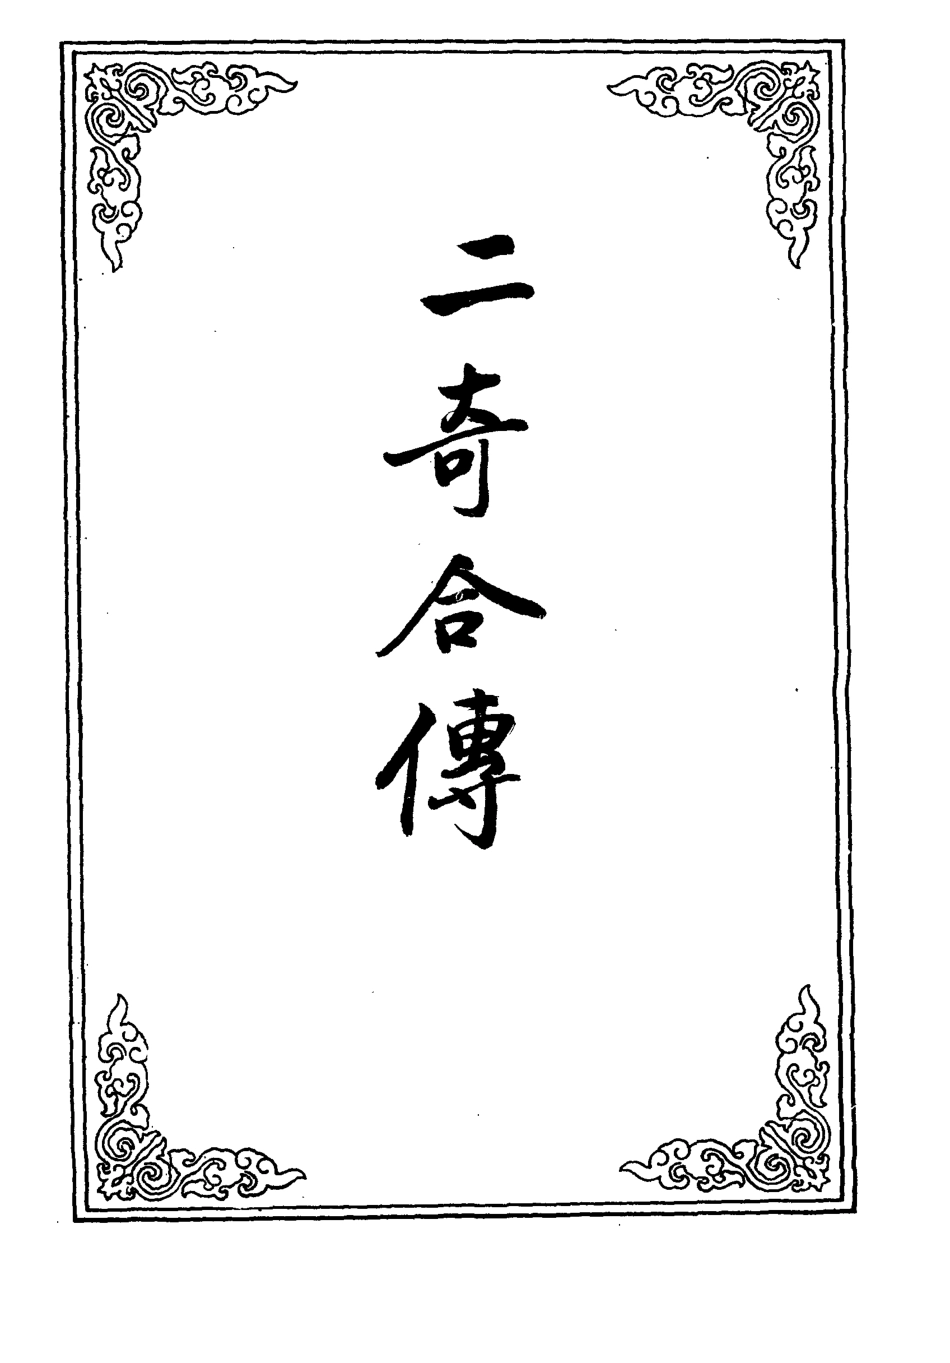 二奇合傳